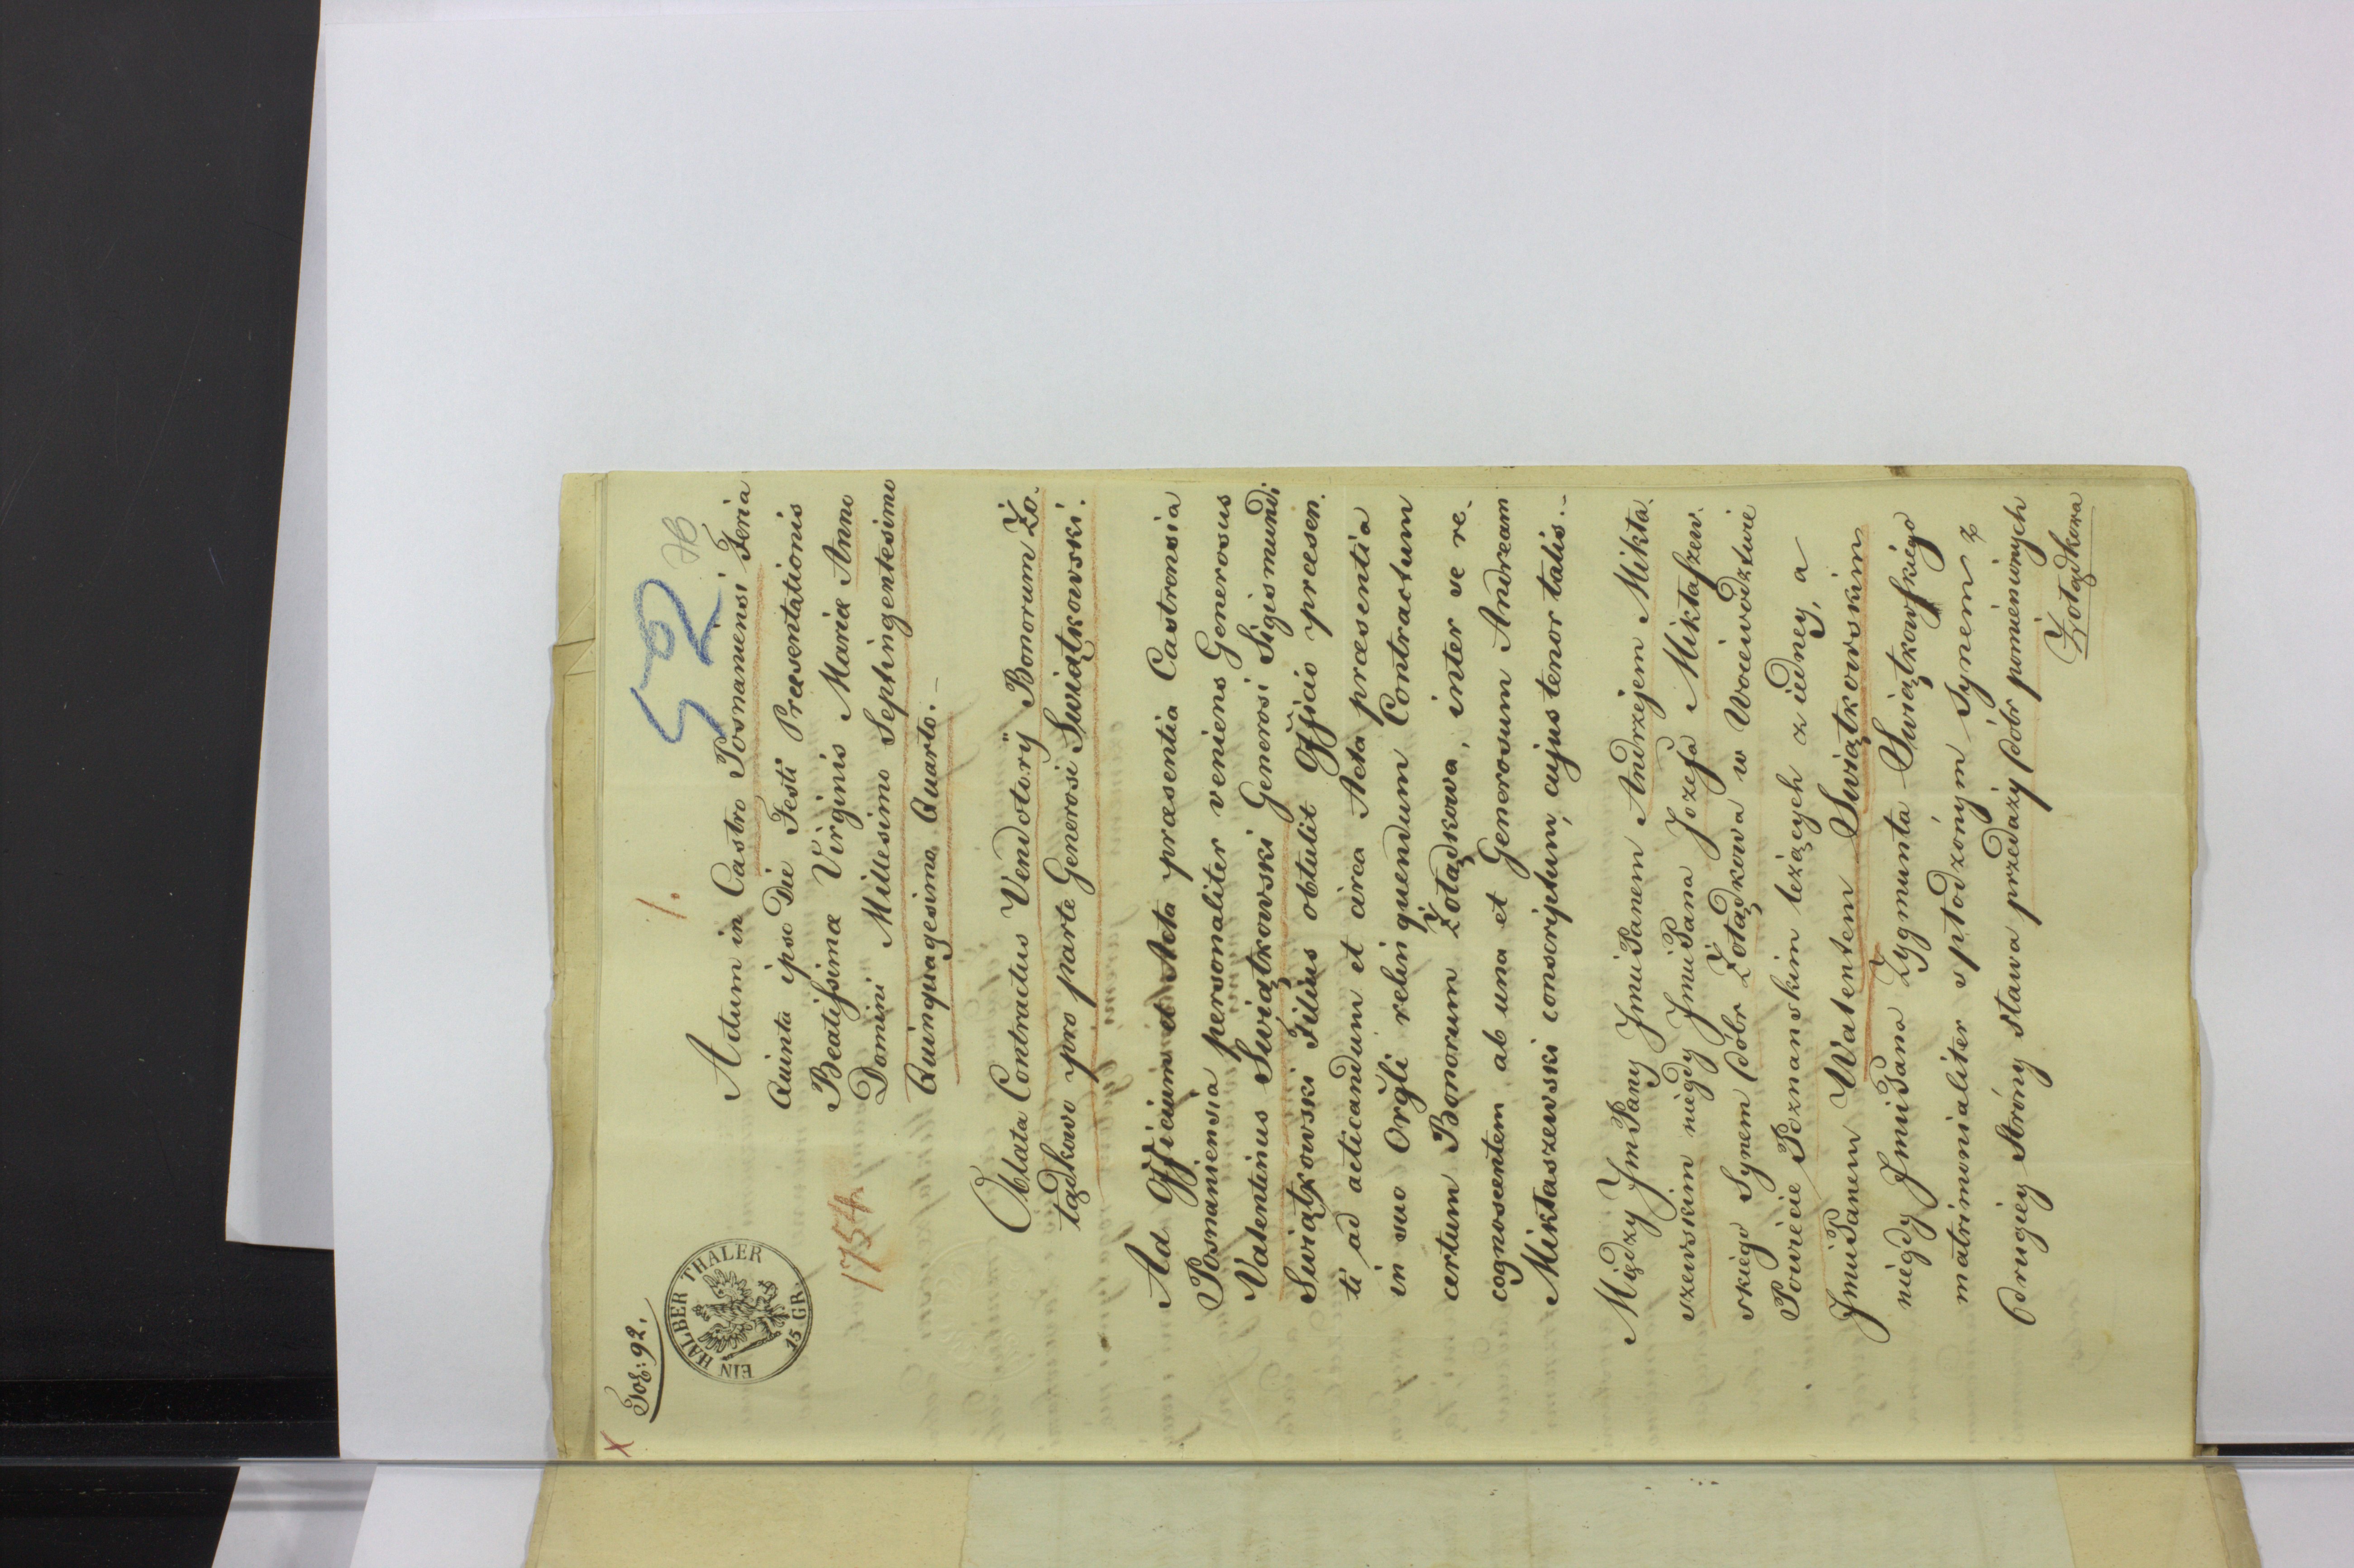 Fol: 92.
EIN HALBER THALER
15 GR.
1.
52
1754
Actum in Castro Posnaniensi Feria
Quinta ipso Die Festi Præsentationis
Beatissimæ Virginis Mariæ Anno
Domini Millesimo Septingentesimo
Quinquagesimo Quarto.—
Oblata Contractus Vendotorÿ Bonorum Żo-
łądkowo pro parte Generosi Swiątkowski.
Ad Officium et Acta præsentia Castrensia
Posnaniensia personaliter veniens Generosus
Valentinus Swiątkowski Generosi Sigismundi
Swiątkowski Filius obtulit Officio præsen-
ti ad acticandum et circa Acta præsentia
in suo Orgli relinquendum Contractum
certum Bonorum Żołądkowa, inter se re-
cognoscentem ab una et Generosum Andream
Miktaszewski conscriptum, cujus tenor talis.—
Między JmPany JmciPanem Andrzejem Mikta-
szewskim niegdy JmciPana Jozefa Miktaszew-
skiego Synem dóbr Żołądkowa w Woiewodztwie
Powiecie Poznanskim leżących z iedney, a
JmciPanem Walentem Swiątkowskim
niegdy JmciPana Zygmunta Swiątkowskiego
matrimonialiter spłodzónym Synem z
drugiey Stróny stawa przedaży dobr pomienionych
Żołądkowa